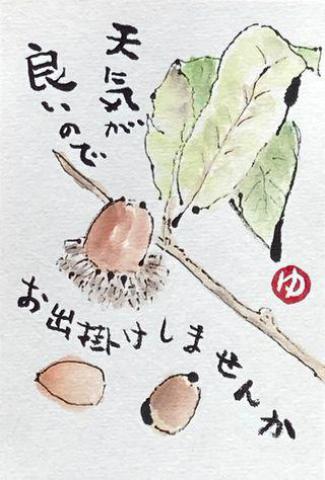 天気が
良いので
お出掛けしませんか
ゆ